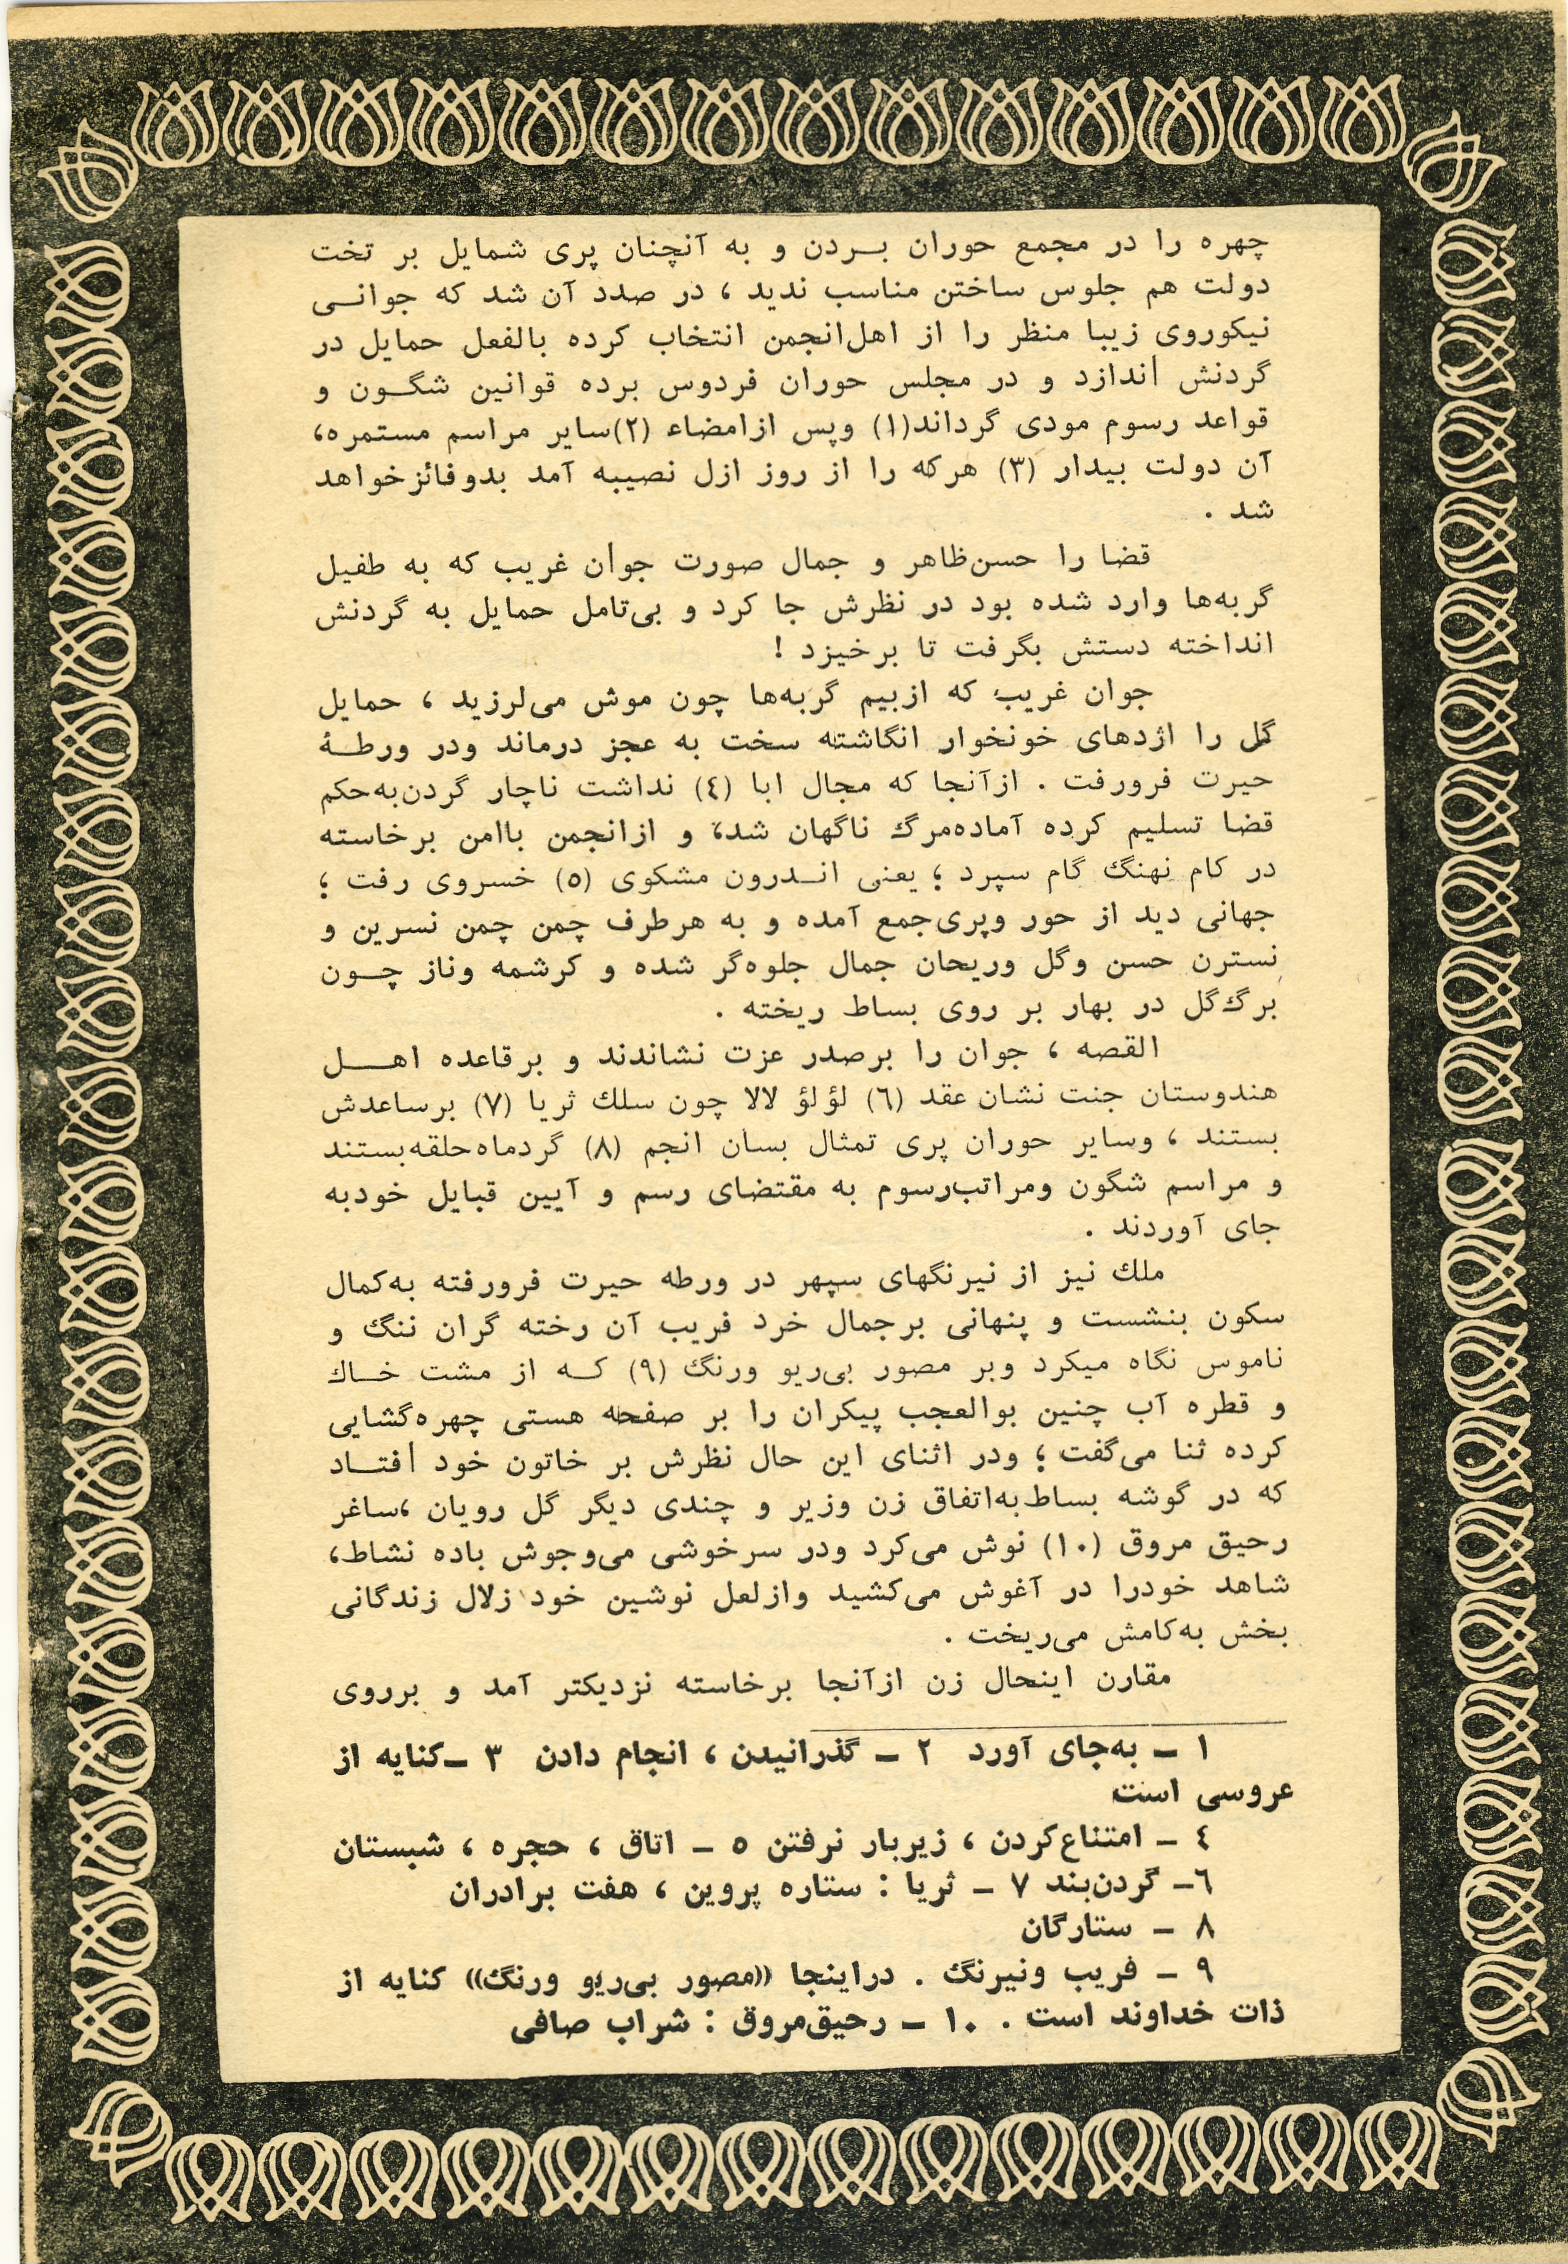 چهره را در مجمع حوران بـــردن و به آنچنان پری شمایل بر تخت
دولت هم جلوس ساختن مناسب ندید ، در صدد آن شد که جوانـــی
نیکوروی زیبا منظر را از اهل‌انجمن انتخاب کرده بالفعل حمایل در
گردنش اندازد و در مجلس حوران فردوس برده قوانین شگـــون و
قواعد رسوم مودی گرداند(۱) وپس ازامضاء (۲)سایر مراسم مستمره،
آن دولت بیدار (۳) هرکه را از روز ازل نصیبه آمد بدوفائزخواهد
شد .
قضا را حسن‌ظاهر و جمال صورت جوان غریب که به طفیل
گربه‌ها وارد شده بود در نظرش جا کرد و بی‌تامل حمایل به گردنش
انداخته دستش بگرفت تا برخیزد !
جوان غریب که ازبیم گربه‌ها چون موش می‌لرزید ، حمایل
گل را اژدهای خونخوار انگاشته سخت به عجز درماند ودر ورطـــهٔ
حیرت فرورفت . ازآنجا که مجال ابا (٤) نداشت ناچار گردن‌به‌حکم
قضا تسلیم کرده آماده‌مرگ ناگهان شد، و ازانجمن باامن برخاسته
در کام نهنگ گام سپرد ؛ یعنی انـــدرون مشکوی (٥) خسروی رفت ؛
جهانی دید از حور وپری‌جمع آمده و به هرطرف چمن چمن نسرین و
نسترن حسن وگل وریحان جمال جلوه‌گر شده و کرشمه وناز چـــون
برگ‌گل در بهار بر روی بساط ریخته .
القصه ، جوان را برصدر عزت نشاندند و برقاعده اهـــل
هندوستان جنت نشان عقد (٦) لؤلؤ لالا چون سلك ثریا (۷) برساعدش
بستند ، وسایر حوران پری تمثال بسان انجم (۸) گردماه‌حلقه‌بستند
و مراسم شگون ومراتب‌رسوم به مقتضای رسم و آیین قبایل خودبه
جای آوردند .
ملك نیز از نیرنگهای سپهر در ورطه حیرت فرورفته به‌کمال
سکون بنشست و پنهانی برجمال خرد فریب آن رخته گران ننگ و
ناموس نگاه میکرد وبر مصور بی‌ریو ورنگ (۹) کـــه از مشت خـــاك
و قطره آب چنین بوالعجب پیکران را بر صفحه هستی چهره‌گشایی
کرده ثنا می‌گفت ؛ ودر اثنای این حال نظرش بر خاتون خود افتـــاد
که در گوشه بساط به‌اتفاق زن وزیر و چندی دیگر گل رویان ،ساغر
رحیق مروق (۱۰) نوش می‌کرد ودر سرخوشی می‌وجوش باده نشاط،
شاهد خودرا در آغوش می‌کشید وازلعل نوشین خود زلال زندگانی
بخش به‌کامش می‌ریخت .
مقارن اینحال زن ازآنجا برخاسته نزدیکتر آمد و برروی
۱ ـ به‌جای آورد ۲ ـ گذرانیدن ، انجام دادن ۳ ـ کنایه از
عروسی است
٤ ـ امتناع‌کردن ، زیربار نرفتن ٥ ـ اتاق ، حجره ، شبستان
٦ـ گردن‌بند ۷ ـ ثریا : ستاره پروین ، هفت برادران
۸ ـ ستارگان
۹ ـ فریب ونیرنگ . دراینجا ((مصور بی‌ریو ورنگ)) کنایه از
ذات خداوند است . ۱۰ ـ رحیق‌مروق : شراب صافی